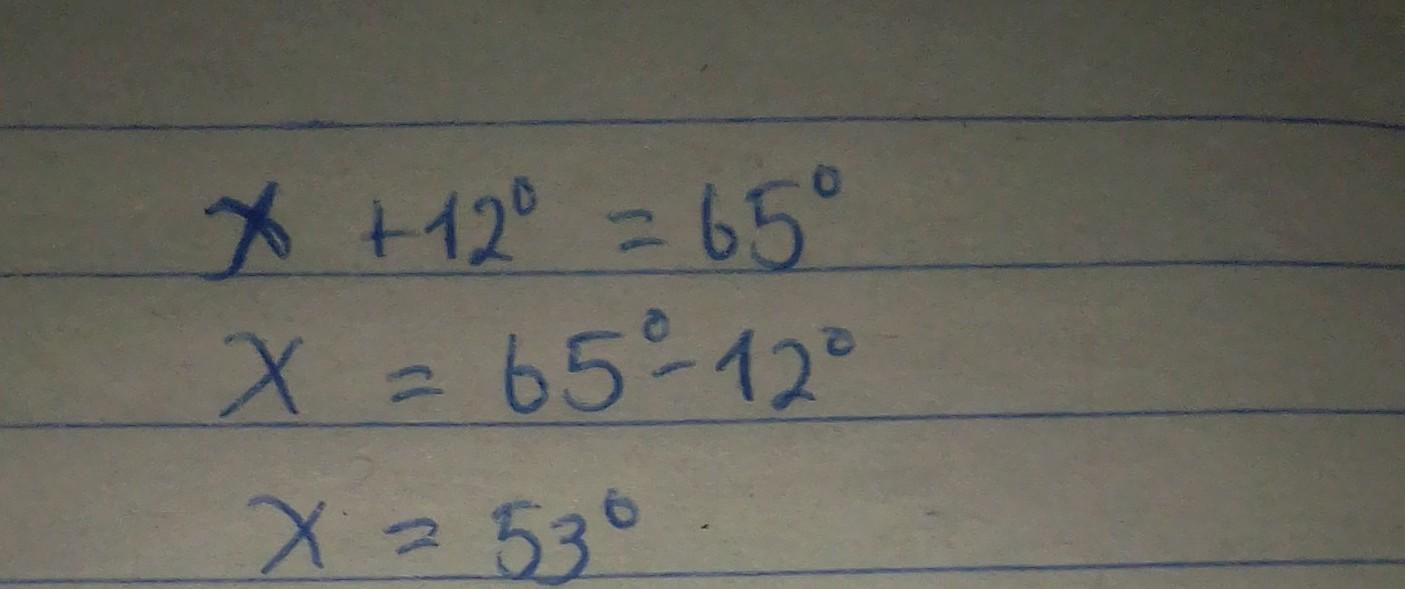 x +12° = 65°
x = 65° - 12°
x = 53°